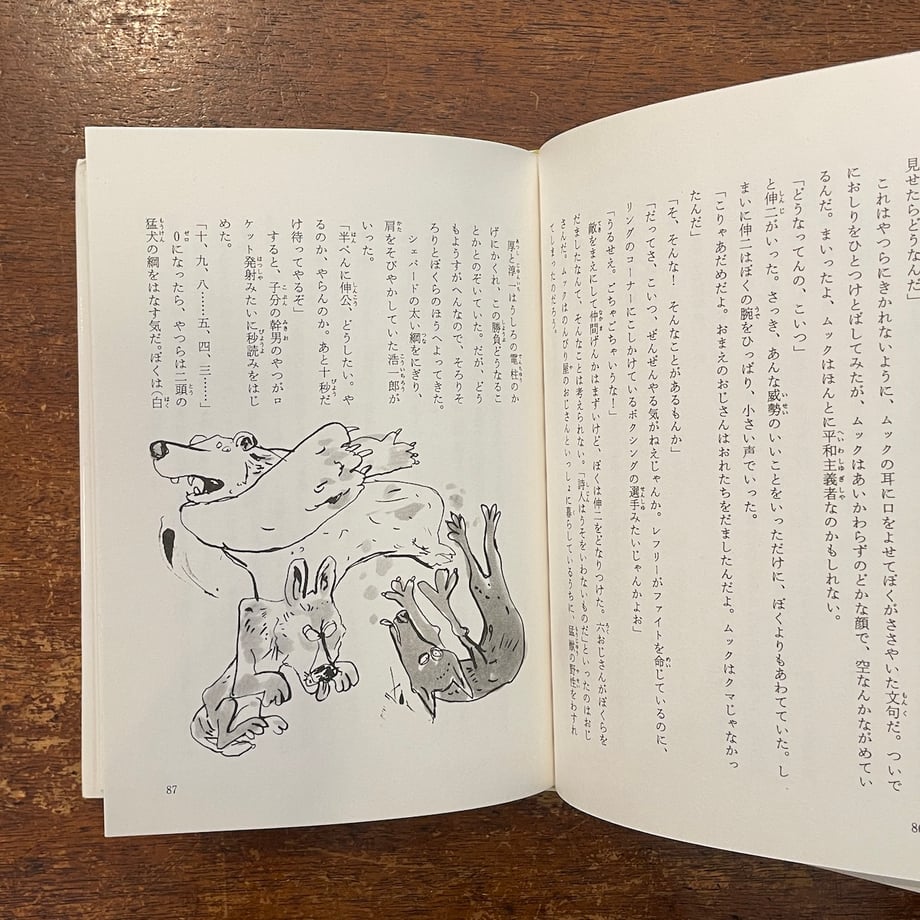 見せたらどうなんだ」
これはやつらにきかれないように、ムックの耳に口をよせてぼくがささやいた文句だ。ついで
におしりをひとつけとばしてみたが、ムックはあいかわらずのどかな顔で、空なんかながめてい
るんだ。まいったよ、ムックはほんとに平和主義者なのかもしれない。
「どうなってんの、こいつ」
と伸二がいった。さっき、あんな威勢のいいことをいっただけに、ぼくよりもあわてていた。し
まいに伸二はぼくの腕をひっぱり、小さい声でいった。
「こりゃあだめだよ。おまえのおじさんはおれたちをだましたんだよ。ムックはクマじゃなかっ
たんだ」
「そ、そんな！　そんなことがあるもんか」
「だってさ、こいつ、ぜんぜんやる気がねえじゃんか。レフリーがファイトを命じているのに、
リングのコーナーにこしかけているボクシングの選手みたいじゃんかよお」
「うるせえ。ごちゃごちゃいうな！」
敵をまえにして仲間げんかはまずいけど、ぼくは伸二をどなりつけた。六おじさんがぼくらを
だましたなんて、そんなことは考えられない。「詩人はうそをいわないものだ」といったのはおじ
さんだ。ムックはのんびり屋のおじさんといっしょに暮らしているうちに、猛獣の野性をわすれ
てしまったのだろう。
86
厚と淳一はうしろの電柱のか
げにかくれ、この勝負どうなるこ
とかとのぞいていた。だが、どう
もようすがへんなので、そろりそ
ろりとぼくらのほうへよってきた。
シェパードの太い綱をにぎり、
肩をそびやかしていた浩一郎が
いった。
「半ぺんに伸公、どうしたい。や
るのか、やらんのか。あと十秒だ
け待ってやるぞ」
すると、子分の幹男のやつがロ
ケット発射みたいに秒読みをはじ
めた。
「十、九、八……五、四、三……」
0になったら、やつらは二頭の
猛犬の綱をはなす気だ。ぼくは（白
87